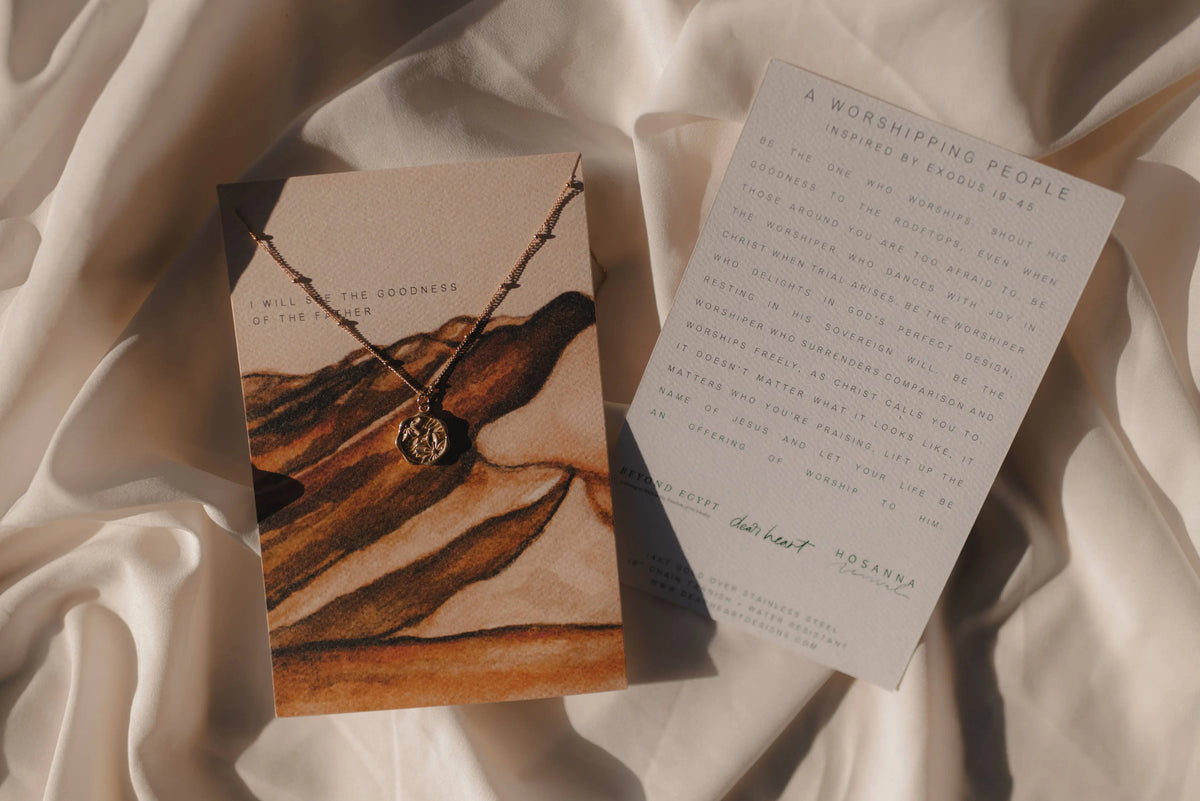 I WILL SEE THE GOODNESS
OF THE FATHER
A WORSHIPPING PEOPLE
INSPIRED BY EXODUS 19-45
BE THE ONE WHO WORSHIPS. SHOUT HIS
GOODNESS TO THE ROOFTOPS, EVEN WHEN
THOSE AROUND YOU ARE TOO AFRAID TO. BE
THE WORSHIPER WHO DANCES WITH JOY IN
CHRIST WHEN TRIAL ARISES. BE THE WORSHIPER
WHO DELIGHTS IN GOD'S PERFECT DESIGN,
RESTING IN HIS SOVEREIGN WILL. BE THE
WORSHIPER WHO SURRENDERS COMPARISON AND
WORSHIPS FREELY, AS CHRIST CALLS YOU TO.
IT DOESN'T MATTER WHAT IT LOOKS LIKE, IT
MATTERS WHO YOU'RE PRAISING. LIFT UP THE
NAME OF JESUS AND LET YOUR LIFE BE
AN OFFERING OF WORSHIP TO HIM
BEYOND EGYPT
dear heart
HOSANNA
Revival
14KT GOLD OVER STAINLESS STEEL
18" CHAIN TARNISH + WATER RESISTANT
WWW.DEARHEARTDESIGNS.COM